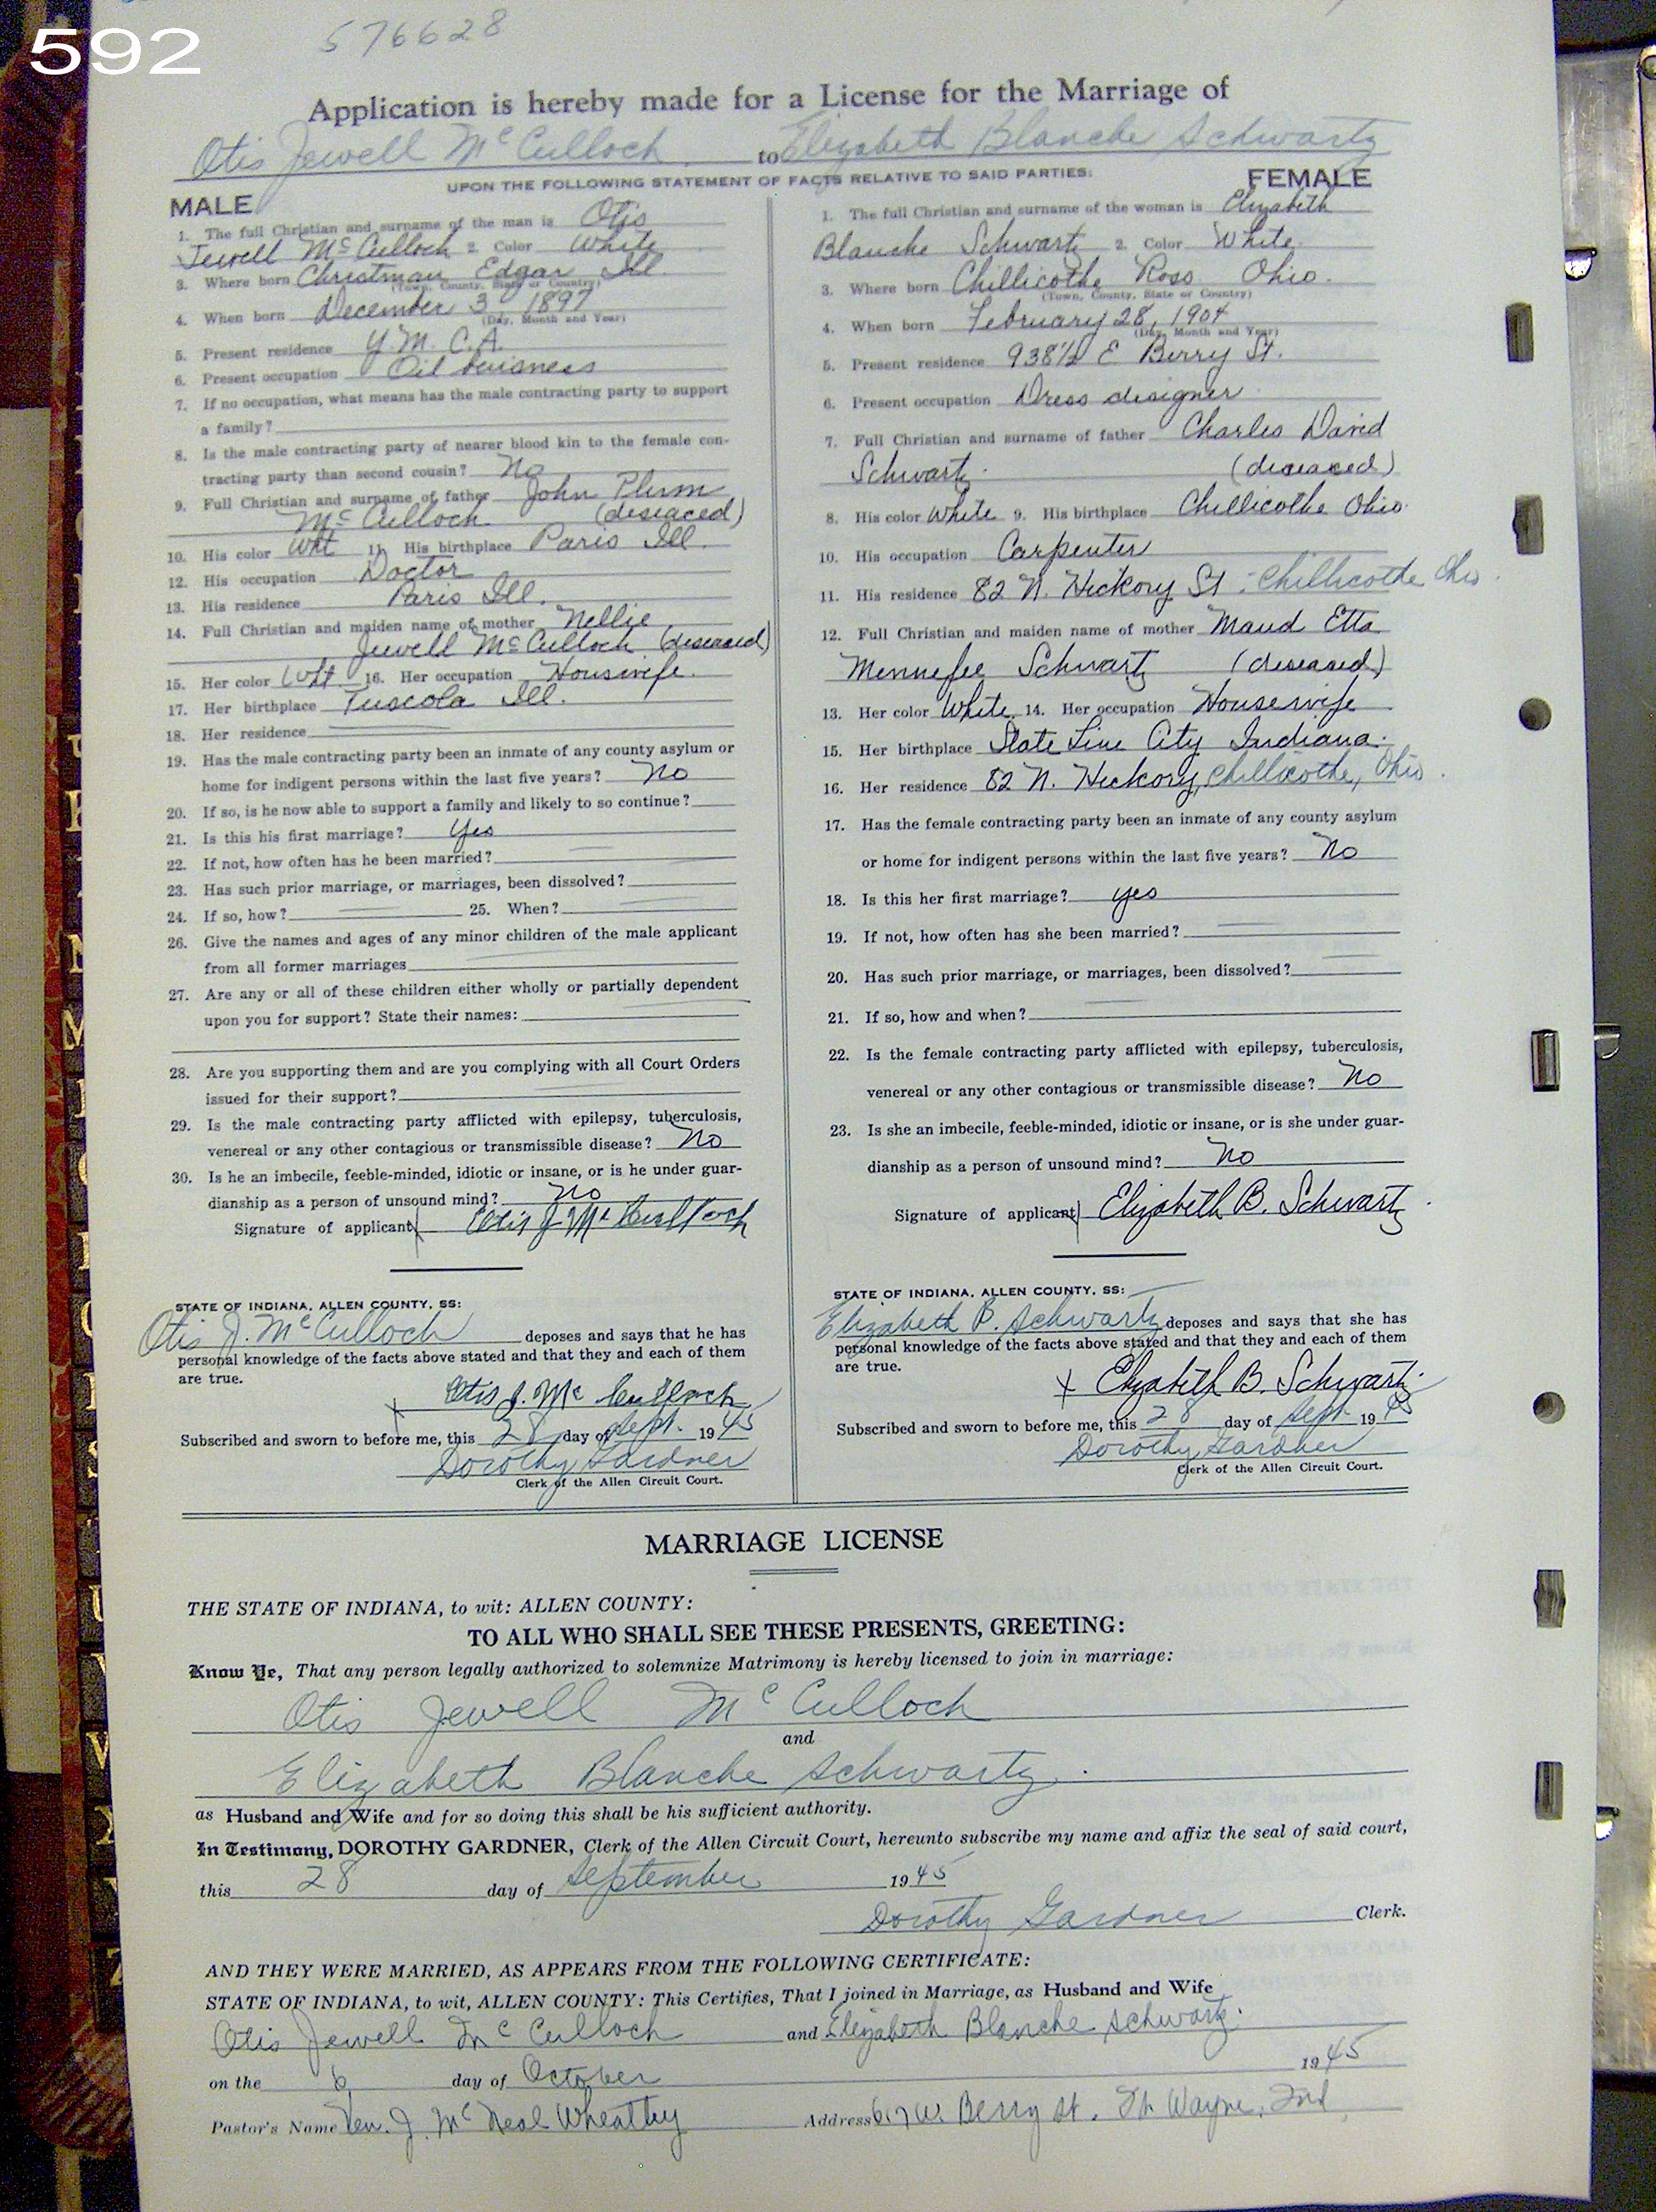 592
576628
Application is hereby made for a License for the Marriage of
Otis Jewell McCulloch to Elizabeth Blanche Schwartz
UPON THE FOLLOWING STATEMENT OF FACTS RELATIVE TO SAID PARTIES:
MALE
1. The full Christian and surname of the man is Otis
Jewell McCulloch 2. Color White
3. Where born Christman Edgar Ill.
(Town, County, State or Country)
4. When born December 3 1897
(Day, Month and Year)
5. Present residence Y.M.C.A.
6. Present occupation Oil buisness
7. If no occupation, what means has the male contracting party to support
a family?
8. Is the male contracting party of nearer blood kin to the female con-
tracting party than second cousin? No
9. Full Christian and surname of father John Plum
McCulloch (deseaced)
10. His color Wht 11. His birthplace Paris Ill.
12. His occupation Doctor
13. His residence Paris Ill.
14. Full Christian and maiden name of mother Nellie
Jewell McCulloch (deseaced)
15. Her color Wht 16. Her occupation Housewife.
17. Her birthplace Tuscola Ill.
18. Her residence
19. Has the male contracting party been an inmate of any county asylum or
home for indigent persons within the last five years? No
20. If so, is he now able to support a family and likely to so continue?
21. Is this his first marriage? Yes
22. If not, how often has he been married?
23. Has such prior marriage, or marriages, been dissolved?
24. If so, how? 25. When?
26. Give the names and ages of any minor children of the male applicant
from all former marriages
27. Are any or all of these children either wholly or partially dependent
upon you for support? State their names:
28. Are you supporting them and are you complying with all Court Orders
issued for their support?
29. Is the male contracting party afflicted with epilepsy, tuberculosis,
venereal or any other contagious or transmissible disease? No
30. Is he an imbecile, feeble-minded, idiotic or insane, or is he under guar-
dianship as a person of unsound mind? No
Signature of applicant Otis J. McCulloch
STATE OF INDIANA, ALLEN COUNTY, SS:
Otis J. McCulloch deposes and says that he has
personal knowledge of the facts above stated and that they and each of them
are true.
x Otis J. McCulloch
Subscribed and sworn to before me, this 28 day of Sept. 1945
Dorothy Gardner
Clerk of the Allen Circuit Court.
FEMALE
1. The full Christian and surname of the woman is Elizabeth
Blanche Schwartz 2. Color White
3. Where born Chillicothe Ross Ohio.
(Town, County, State or Country)
4. When born February 28, 1904
(Day, Month and Year)
5. Present residence 938 1/2 E Berry St.
6. Present occupation Dress designer
7. Full Christian and surname of father Charles David
Schwartz (deseaced)
8. His color White 9. His birthplace Chillicothe Ohio
10. His occupation Carpenter
11. His residence 82 N. Hickory St Chillicothe Ohio
12. Full Christian and maiden name of mother Maud Etta
Mennefee Schwartz (deseased)
13. Her color White. 14. Her occupation Housewife
15. Her birthplace State Line City Indiana.
16. Her residence 82 N. Hickory, Chillicothe, Ohio.
17. Has the female contracting party been an inmate of any county asylum
or home for indigent persons within the last five years? No
18. Is this her first marriage? yes
19. If not, how often has she been married?
20. Has such prior marriage, or marriages, been dissolved?
21. If so, how and when?
22. Is the female contracting party afflicted with epilepsy, tuberculosis,
venereal or any other contagious or transmissible disease? No
23. Is she an imbecile, feeble-minded, idiotic or insane, or is she under guar-
dianship as a person of unsound mind? No
Signature of applicant Elizabeth B. Schwartz
STATE OF INDIANA, ALLEN COUNTY, SS:
Elizabeth B. Schwartz deposes and says that she has
personal knowledge of the facts above stated and that they and each of them
are true.
x Elizabeth B. Schwartz
Subscribed and sworn to before me, this 28 day of Sept. 1945
Dorothy Gardner
Clerk of the Allen Circuit Court.
MARRIAGE LICENSE
THE STATE OF INDIANA, to wit: ALLEN COUNTY:
TO ALL WHO SHALL SEE THESE PRESENTS, GREETING:
Know Ye, That any person legally authorized to solemnize Matrimony is hereby licensed to join in marriage:
Otis Jewell McCulloch
and
Elizabeth Blanche Schwartz.
as Husband and Wife and for so doing this shall be his sufficient authority.
In Testimony, DOROTHY GARDNER, Clerk of the Allen Circuit Court, hereunto subscribe my name and affix the seal of said court,
this 28 day of September 1945
Dorothy Gardner Clerk.
AND THEY WERE MARRIED, AS APPEARS FROM THE FOLLOWING CERTIFICATE:
STATE OF INDIANA, to wit, ALLEN COUNTY: This Certifies, That I joined in Marriage, as Husband and Wife
Otis Jewell McCulloch and Elizabeth Blanche Schwartz.
on the 6 day of October 1945
Pastor's Name Rev. J. McNeal Wheatley Address 617 W. Berry St. Ft. Wayne, Ind